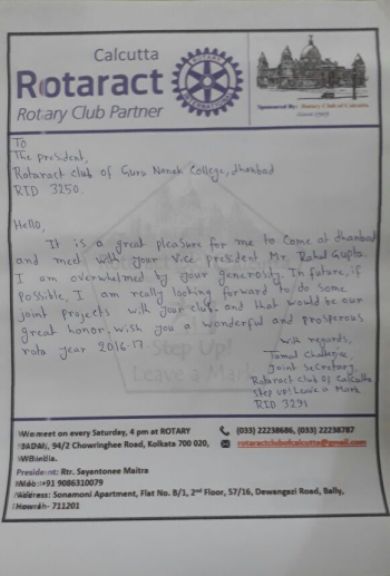 Calcutta
Rotaract
Rotary Club Partner
ROTARY
INTERNATIONAL
Sponsored By: Rotary Club of Calcutta
To
The president,
Rotaract club of Guru Nanak College, dhanbad
RID 3250.
Hello,
It is a great pleasure for me to come at dhanbad
and meet with your Vice president, Mr. Rahul Gupta.
I am overwhelmed by your generosity. In future, if
possible, I am really looking forward to do some
joint projects with your club. and that would be our
great honor. wish you a wonderful and prosperous
rota year 2016-17
Step Up!
Leave a Mark
with regards,
Tamal Chatterjee,
Joint secretary
Rotaract club of Calcutta
Step up! Leave a Mark
RID 3291
We meet on every Saturday, 4 pm at ROTARY
SADAN, 94/2 Chowringhee Road, Kolkata 700 020,
WB India.
(033) 22238686, (033) 22238787
rotaractclubofcalcutta@gmail.com
President: Rtr. Sayantonee Maitra
Mob :+91 9086310079
Address: Sonamoni Apartment, Flat No. B/1, 2nd Floor, 57/16, Dewangazi Road, Bally,
Howrah- 711201